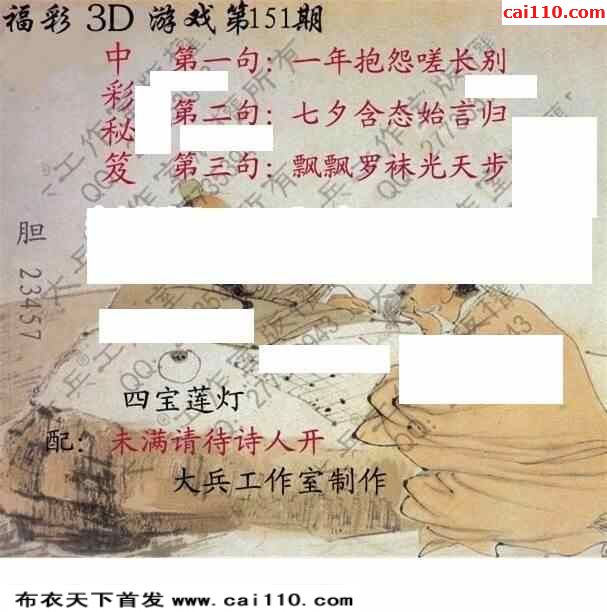 布衣天下
cai110.com
福彩 3D 游戏第151期
中彩秘笈
第一句：一年抱怨嗟长别
第二句：七夕含态始言归
第三句：飘飘罗袜光天步
胆 23457
四宝莲灯
配：未满请待诗人开
大兵工作室制作
布衣天下首发 www.cai110.com